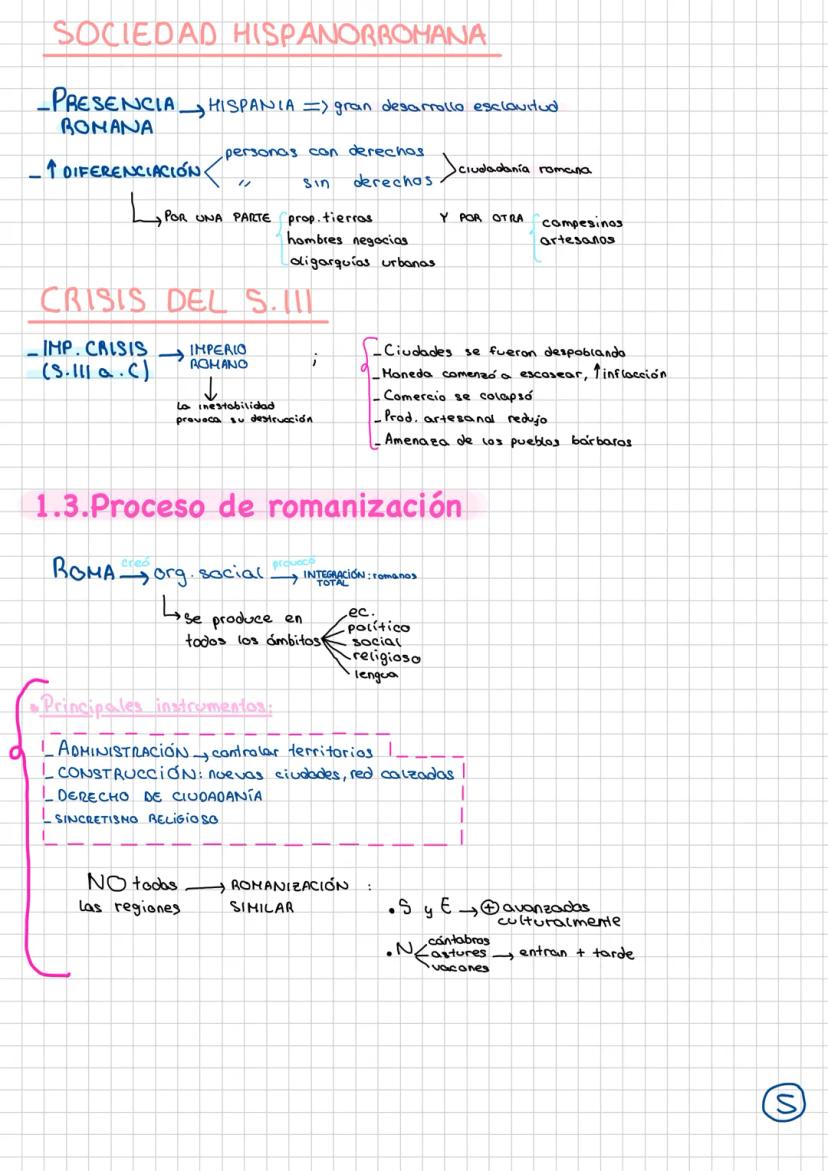 SOCIEDAD HISPANORROMANA
- PRESENCIA ROMANA → HISPANIA => gran desarrollo esclavitud
- ↑ DIFERENCIACIÓN < personas con derechos
" sin derechos > ciudadanía romana
↳ POR UNA PARTE prop. tierras
hombres negocios
oligarquías urbanas
Y POR OTRA campesinos
artesanos
CRISIS DEL S.III
- IMP. CRISIS → IMPERIO ROMANO ;
(S.III a.C)
↓
La inestabilidad
provoca su destrucción
- Ciudades se fueron despoblando
- Moneda comenzó a escasear, ↑ inflacción
- Comercio se colapsó
- Prod. artesanal redujo
- Amenaza de los pueblos bárbaros
1.3.Proceso de romanización
ROMA creó → org. social provocó → INTEGRACIÓN TOTAL : romanos
↳ se produce en
todos los ámbitos
ec.
político
social
religioso
lengua
• Principales instrumentos:
- ADMINISTRACIÓN → controlar territorios
- CONSTRUCCIÓN: nuevas ciudades, red calzadas
- DERECHO DE CIUDADANÍA
- SINCRETISMO RELIGIOSO
NO todas → ROMANIZACIÓN :
las regiones SIMILAR
• S y E → ⊕ avanzadas
culturalmente
• N < cántabros
astures → entran + tarde
vacones
S